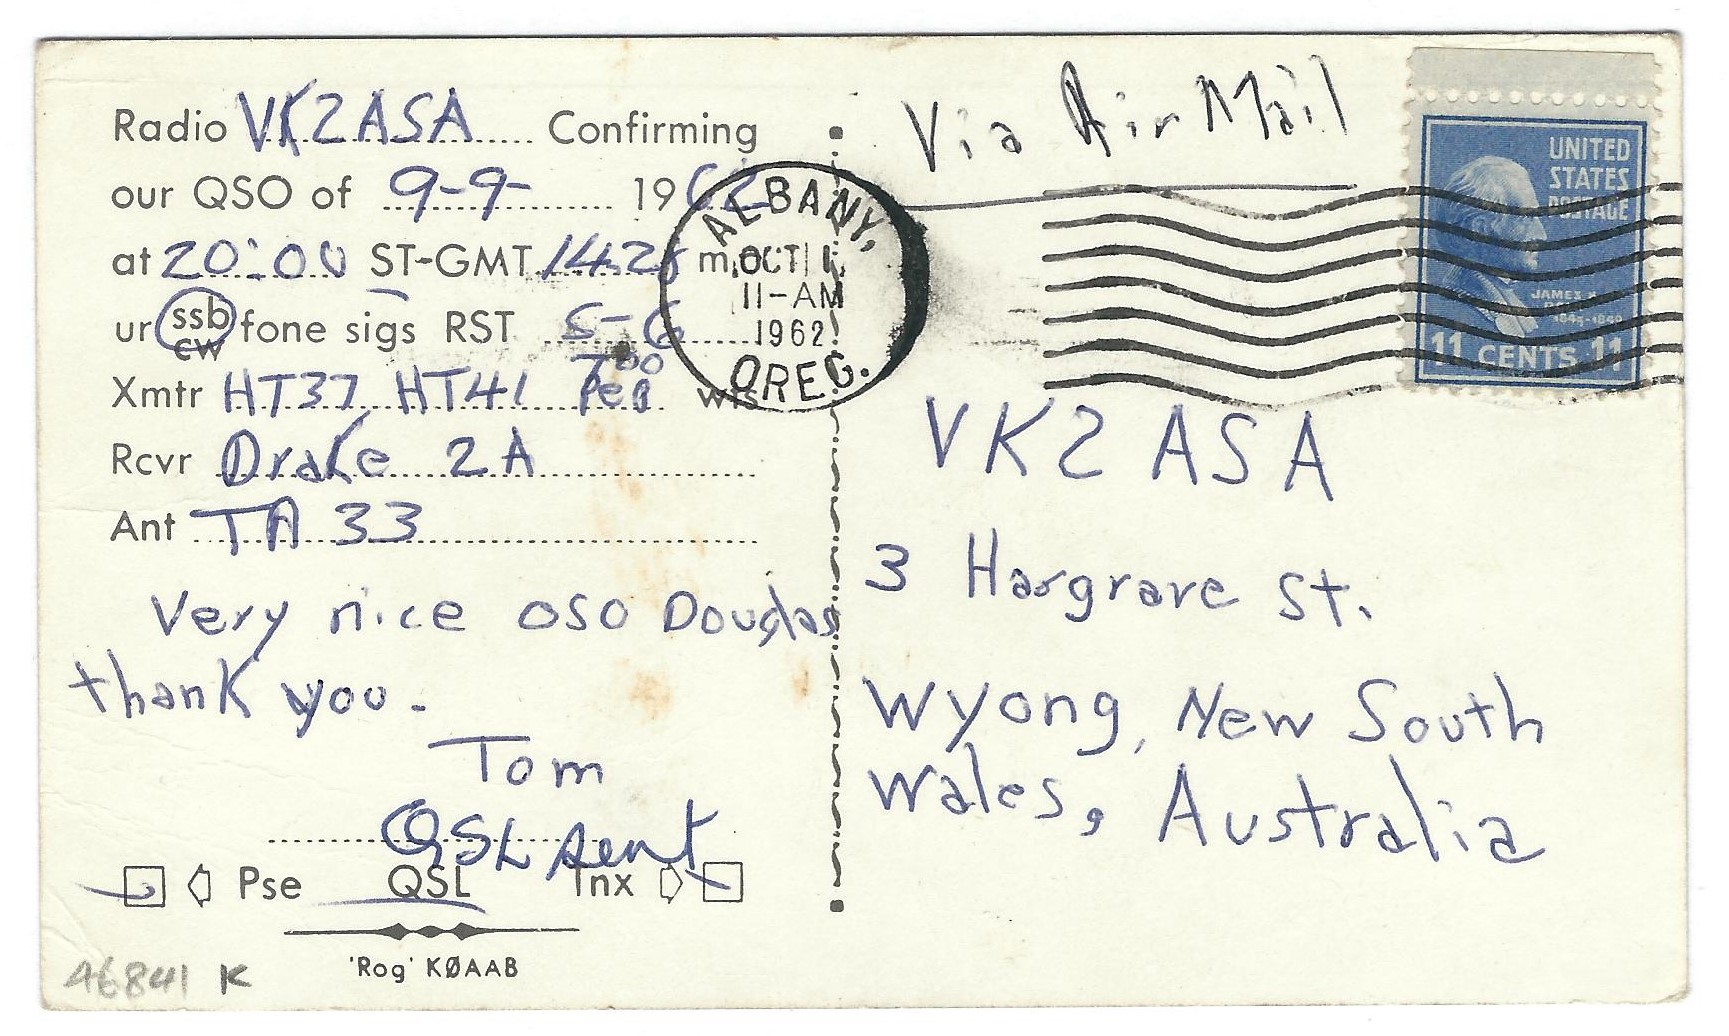 Radio VK2ASA Confirming
our QSO of 9-9- 1962
at 20:00 ST-GMT 14.28 m
ur ssb fone sigs RST 5-6
cw
700
Xmtr HT37 HT41 Pep wts
Rcvr Drake 2A
Ant TA 33
Very nice QSO Douglas
thank you.
Tom
QSL sent
Pse QSL Tnx
'Rog' KØAAB
46841 K
Via Air Mail
ALBANY,
OCT 1
11-AM
1962
OREG.
UNITED
STATES
POSTAGE
JAMES K.
1845-1849
11 CENTS 11
VK2ASA
3 Hargrave St.
Wyong, New South
Wales, Australia